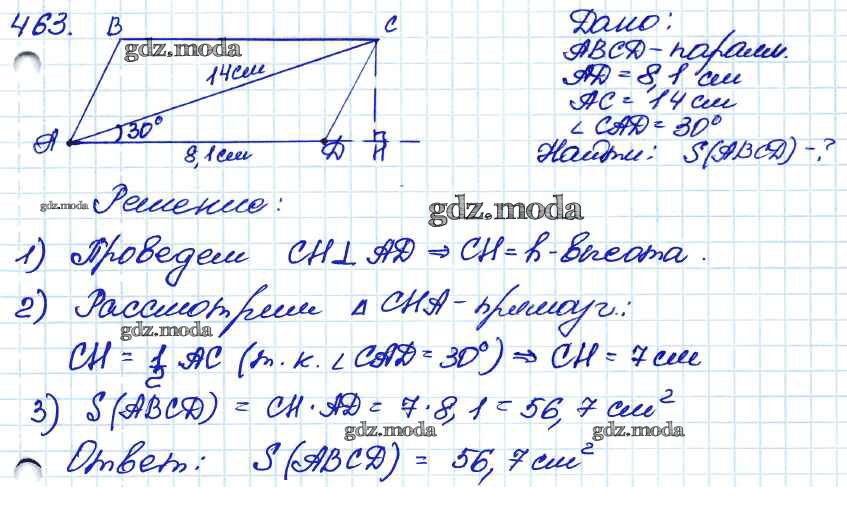 463.
B
C
14 см
30°
A
8,1 см
D
H
Дано:
ABCD - паралл.
AD = 8,1 см
AC = 14 см
∠ CAD = 30°
Найти: S(ABCD) - ?
gdz.moda
gdz.moda
Решение:
gdz.moda
1) Проведем CH ⊥ AD ⇒ CH = h - высота.
2) Рассмотрим Δ CHA - прямоуг.:
gdz.moda
CH = 1/2 AC (т. к. ∠ CAD = 30°) ⇒ CH = 7 см
3) S(ABCD) = CH · AD = 7 · 8,1 = 56,7 см²
gdz.moda
gdz.moda
Ответ: S(ABCD) = 56,7 см²